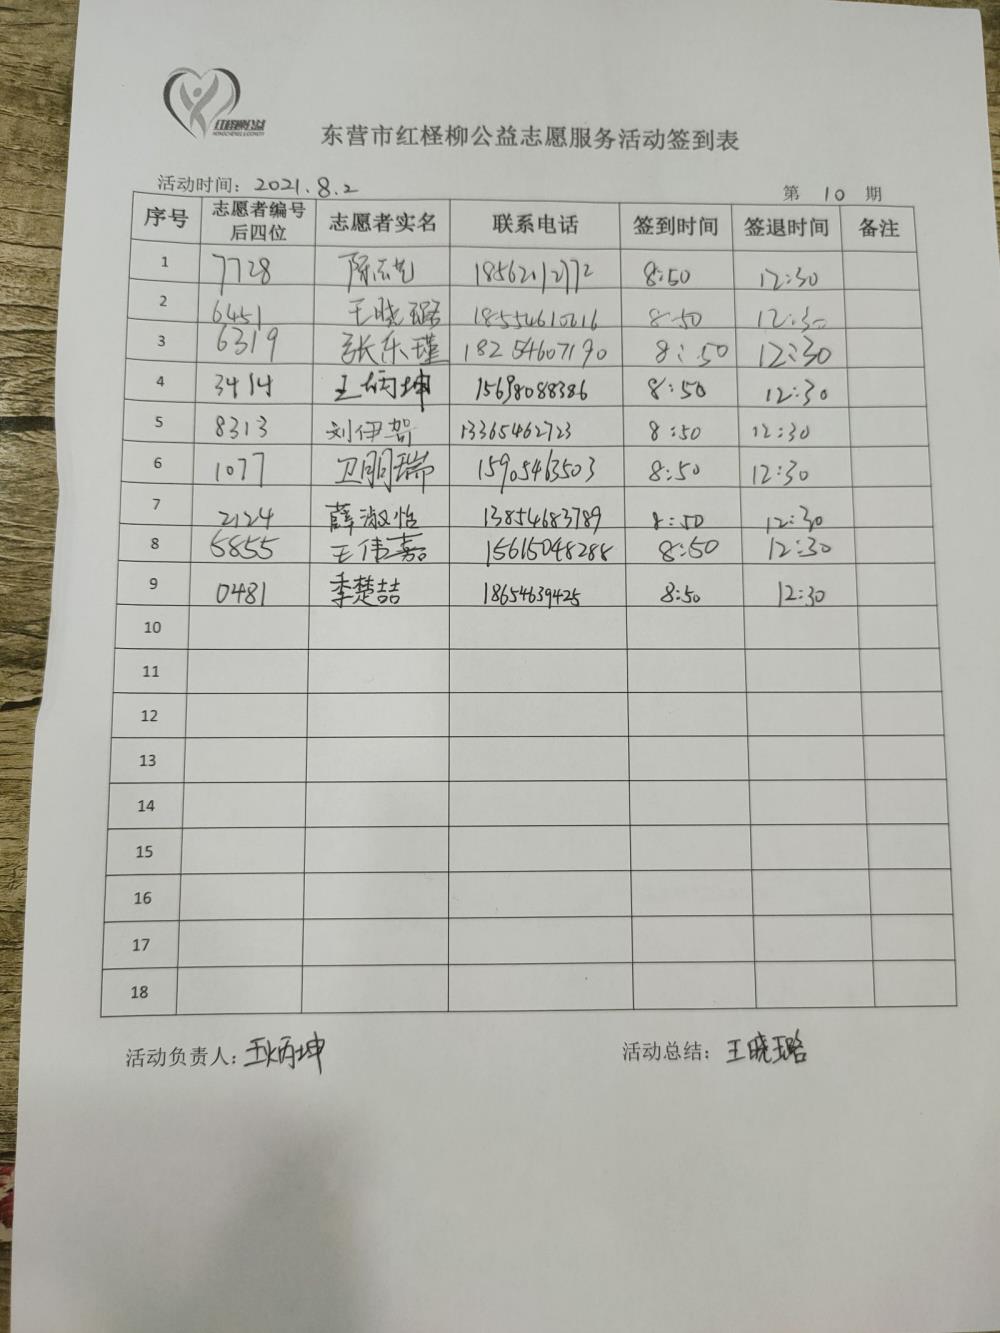 红柽柳公益
东营市红柽柳公益志愿服务活动签到表
活动时间：2021.8.2 第 10 期
序号 志愿者编号后四位 志愿者实名 联系电话 签到时间 签退时间 备注
1 7728 陈志艺 18562121272 8:50 12:30
2 6451 王晓璐 18554610616 8:50 12:30
3 6319 张东瑾 18254607190 8:50 12:30
4 3414 王炳坤 15698088386 8:50 12:30
5 8313 刘伊贺 13365462723 8:50 12:30
6 1077 卫朋瑞 15905463503 8:50 12:30
7 2124 薛淑怡 13854683789 8:50 12:30
8 5855 王伟嘉 15615048288 8:50 12:30
9 0481 李楚喆 18654639425 8:50 12:30
10
11
12
13
14
15
16
17
18
活动负责人：王炳坤 活动总结：王晓璐